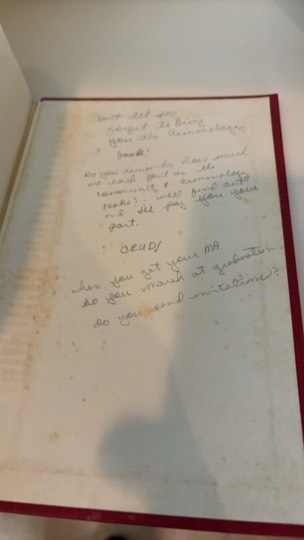 let you
forget to bring
you the Criminology
book!
Do you remember how much
we each put in the
community & criminology
books? well find out
and I'll pay you your
part.
CRUD!
when you get your MA
do you march at graduation
Do you send invitations?